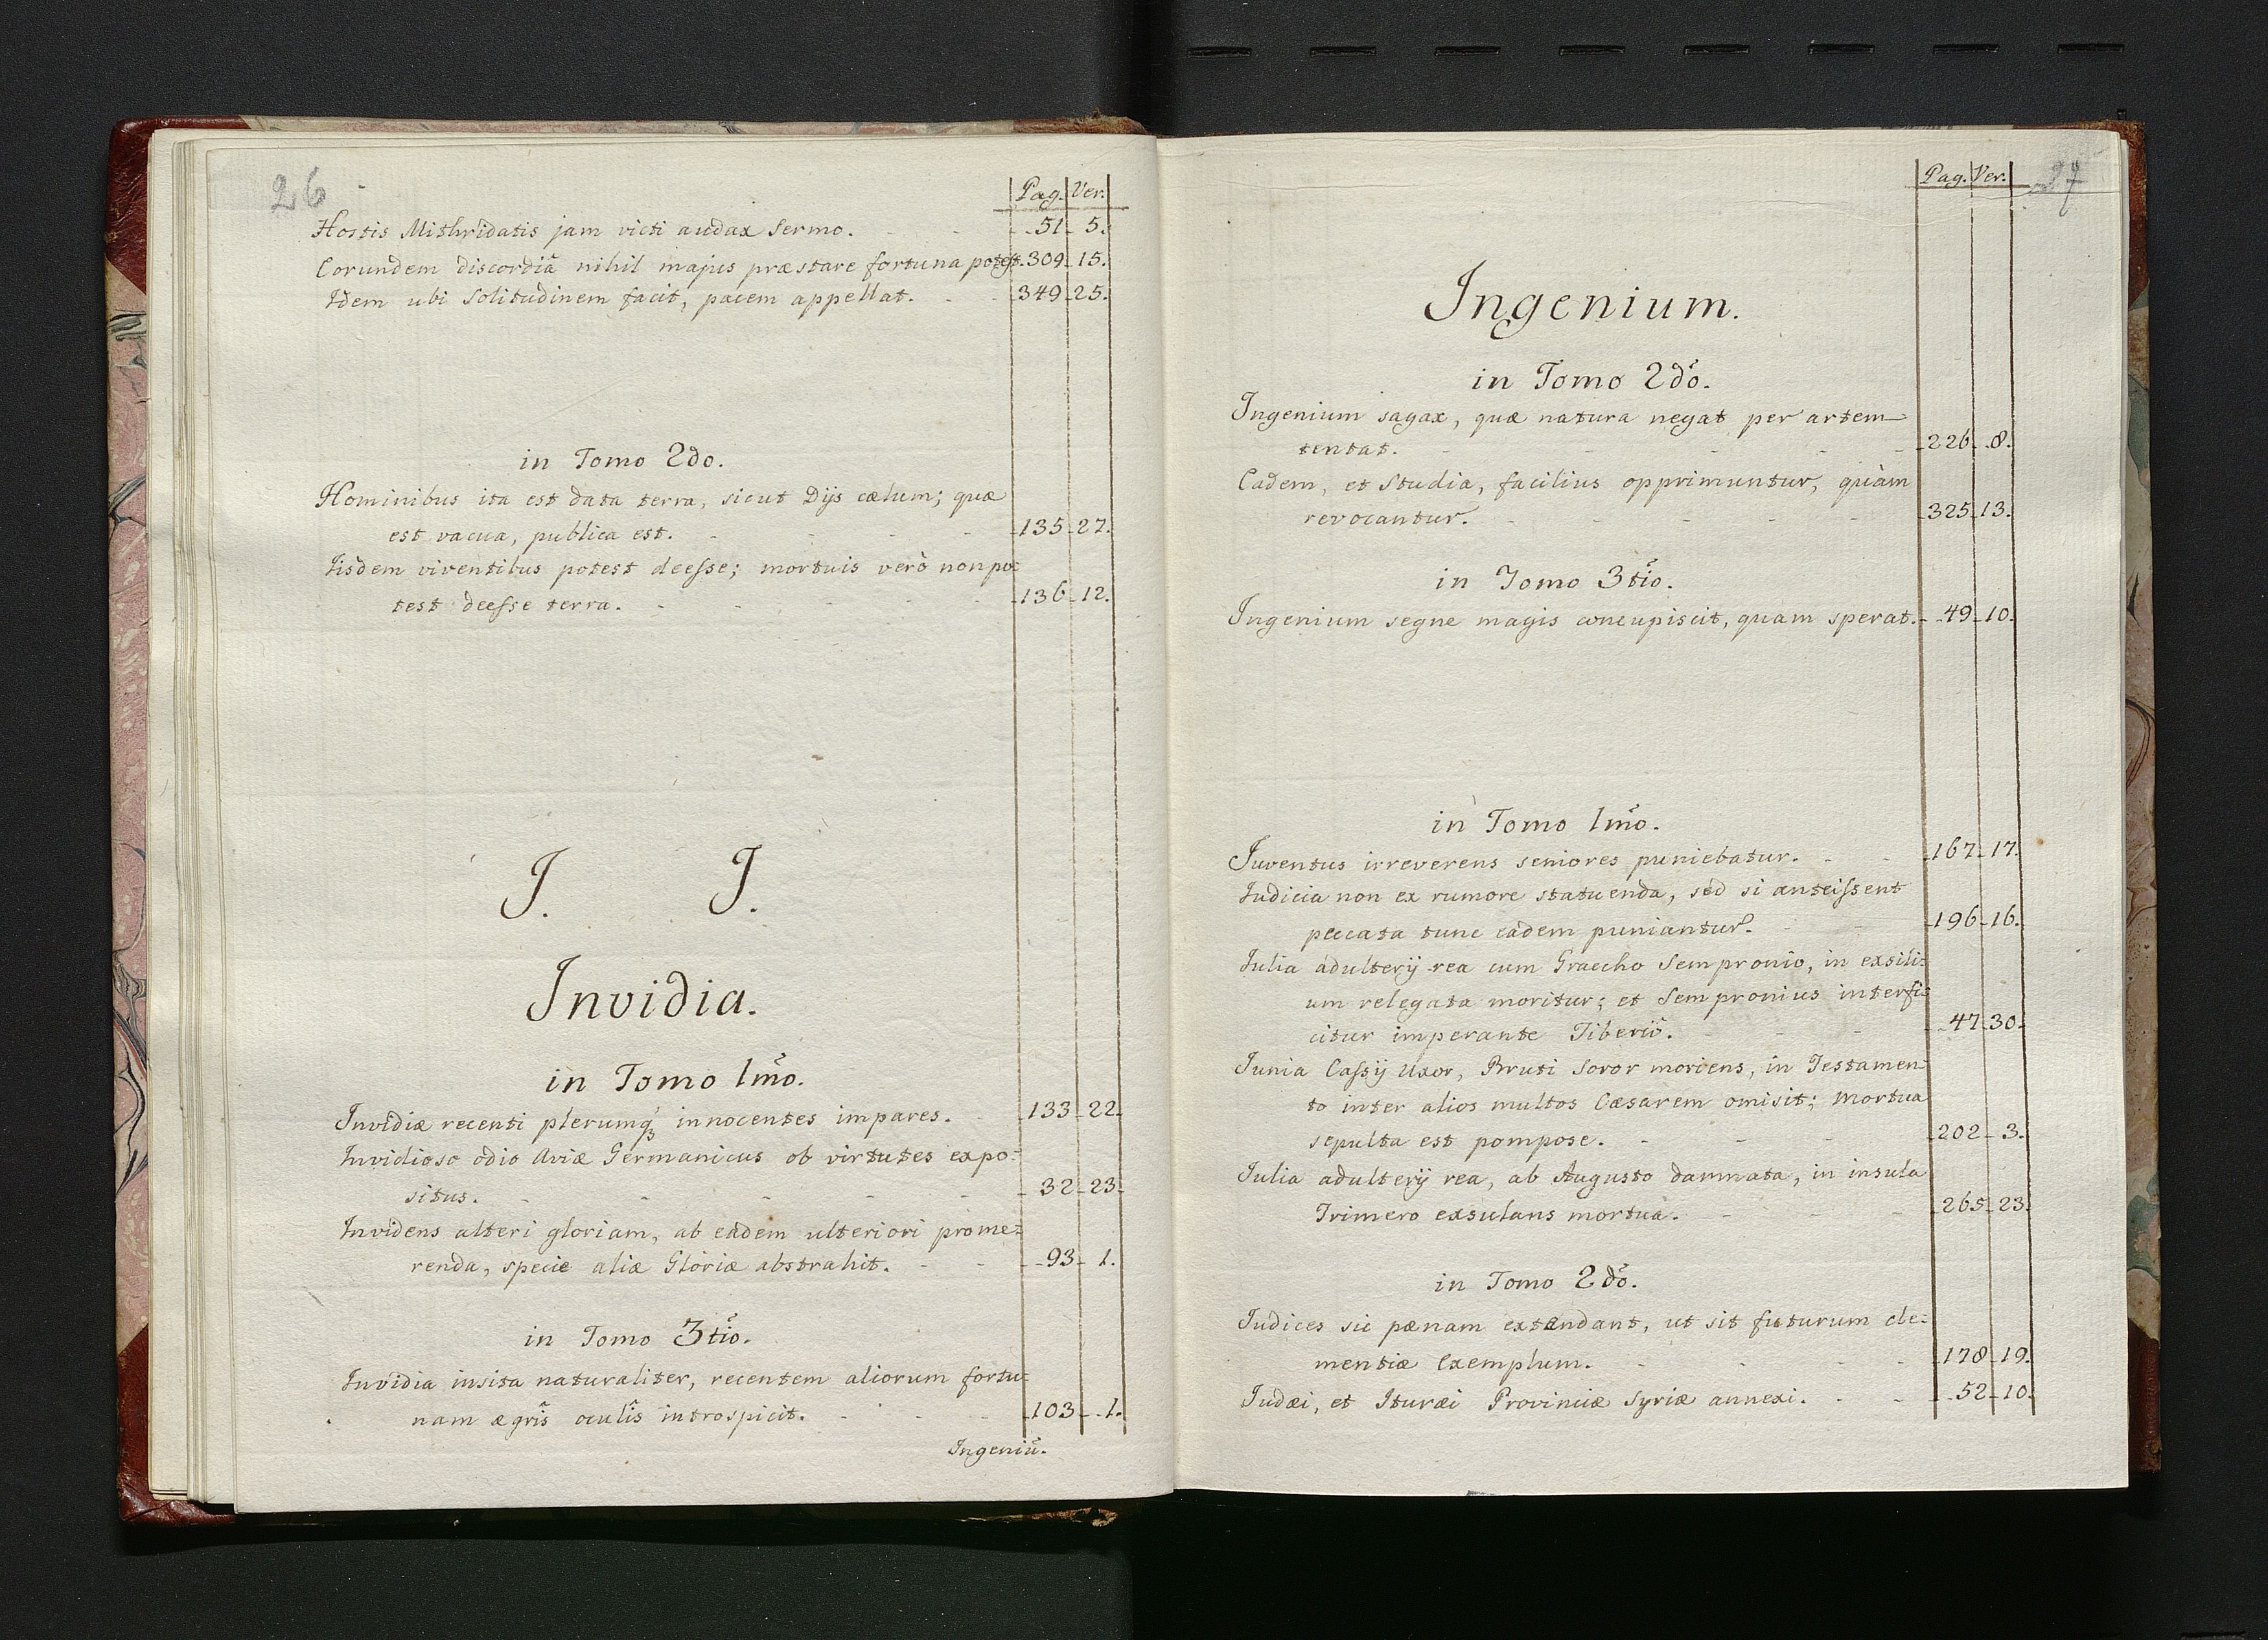 26
Pag. Ver.
Hostis Mithridatis jam victi audax Sermo. 51 5.
Eorundem discordiâ nihil majus præstare fortuna potest. 309 15.
Idem ubi Solitudinem facit, pacem appellat. 349 25.
in Tomo 2do.
Hominibus ita est data terra, sicut Dijs cælum; quæ
est vacua, publica est. 135 27.
Iisdem viventibus potest deesse; mortuis verò non po:
test deesse terra. 136 12.
J. J.
Invidia.
in Tomo 1mo.
Invidiæ recenti plerumq; innocentes impares. 133 22.
Invidioso odio Aviæ Germanicus ob virtutes expo:
situs. 32 23.
Invidens alteri gloriam, ab eâdem ulteriori prome:
renda, specie aliæ Gloriæ abstrahit. 93 1.
in Tomo 3tio.
Invidia insita naturaliter, recentem aliorum fortu:
nam ægris oculis introspicit. 103 1.
Ingeniũ.
27
Pag. Ver.
Ingenium.
in Tomo 2do.
Ingenium sagax, quæ natura negat per artem
tentat. 226 8.
Eadem, et Studia, facilius opprimuntur, quàm
revocantur. 325 13.
in Tomo 3tio.
Ingenium segne magis concupiscit, quam sperat. 49 10.
in Tomo 1mo.
Juventus irreverens seniores puniebatur. 167 17.
Iudicia non ex rumore statuenda, sed si anteissent
peccata tunc eadem puniantur. 196 16.
Iulia adulterij rea cum Graccho Sempronio, in exsili:
um relegata moritur; et Sempronius interfi:
citur imperante Tiberio. 47 30.
Iunia Cassij Uxor, Bruti Soror moriens, in Testamen
to inter alios multos Cæsarem omisit; mortua
sepulta est pompose. 202 3.
Iulia adulterij rea, ab Augusto damnata, in insula
Trimero exsulans mortua. 265 23.
in Tomo 2do.
Iudices sic pænam extendant, ut sit futurum cle:
mentiæ Exemplum. 178 19.
Iudæi, et Ituræi Provinciæ Syriæ annexi. 52 10.